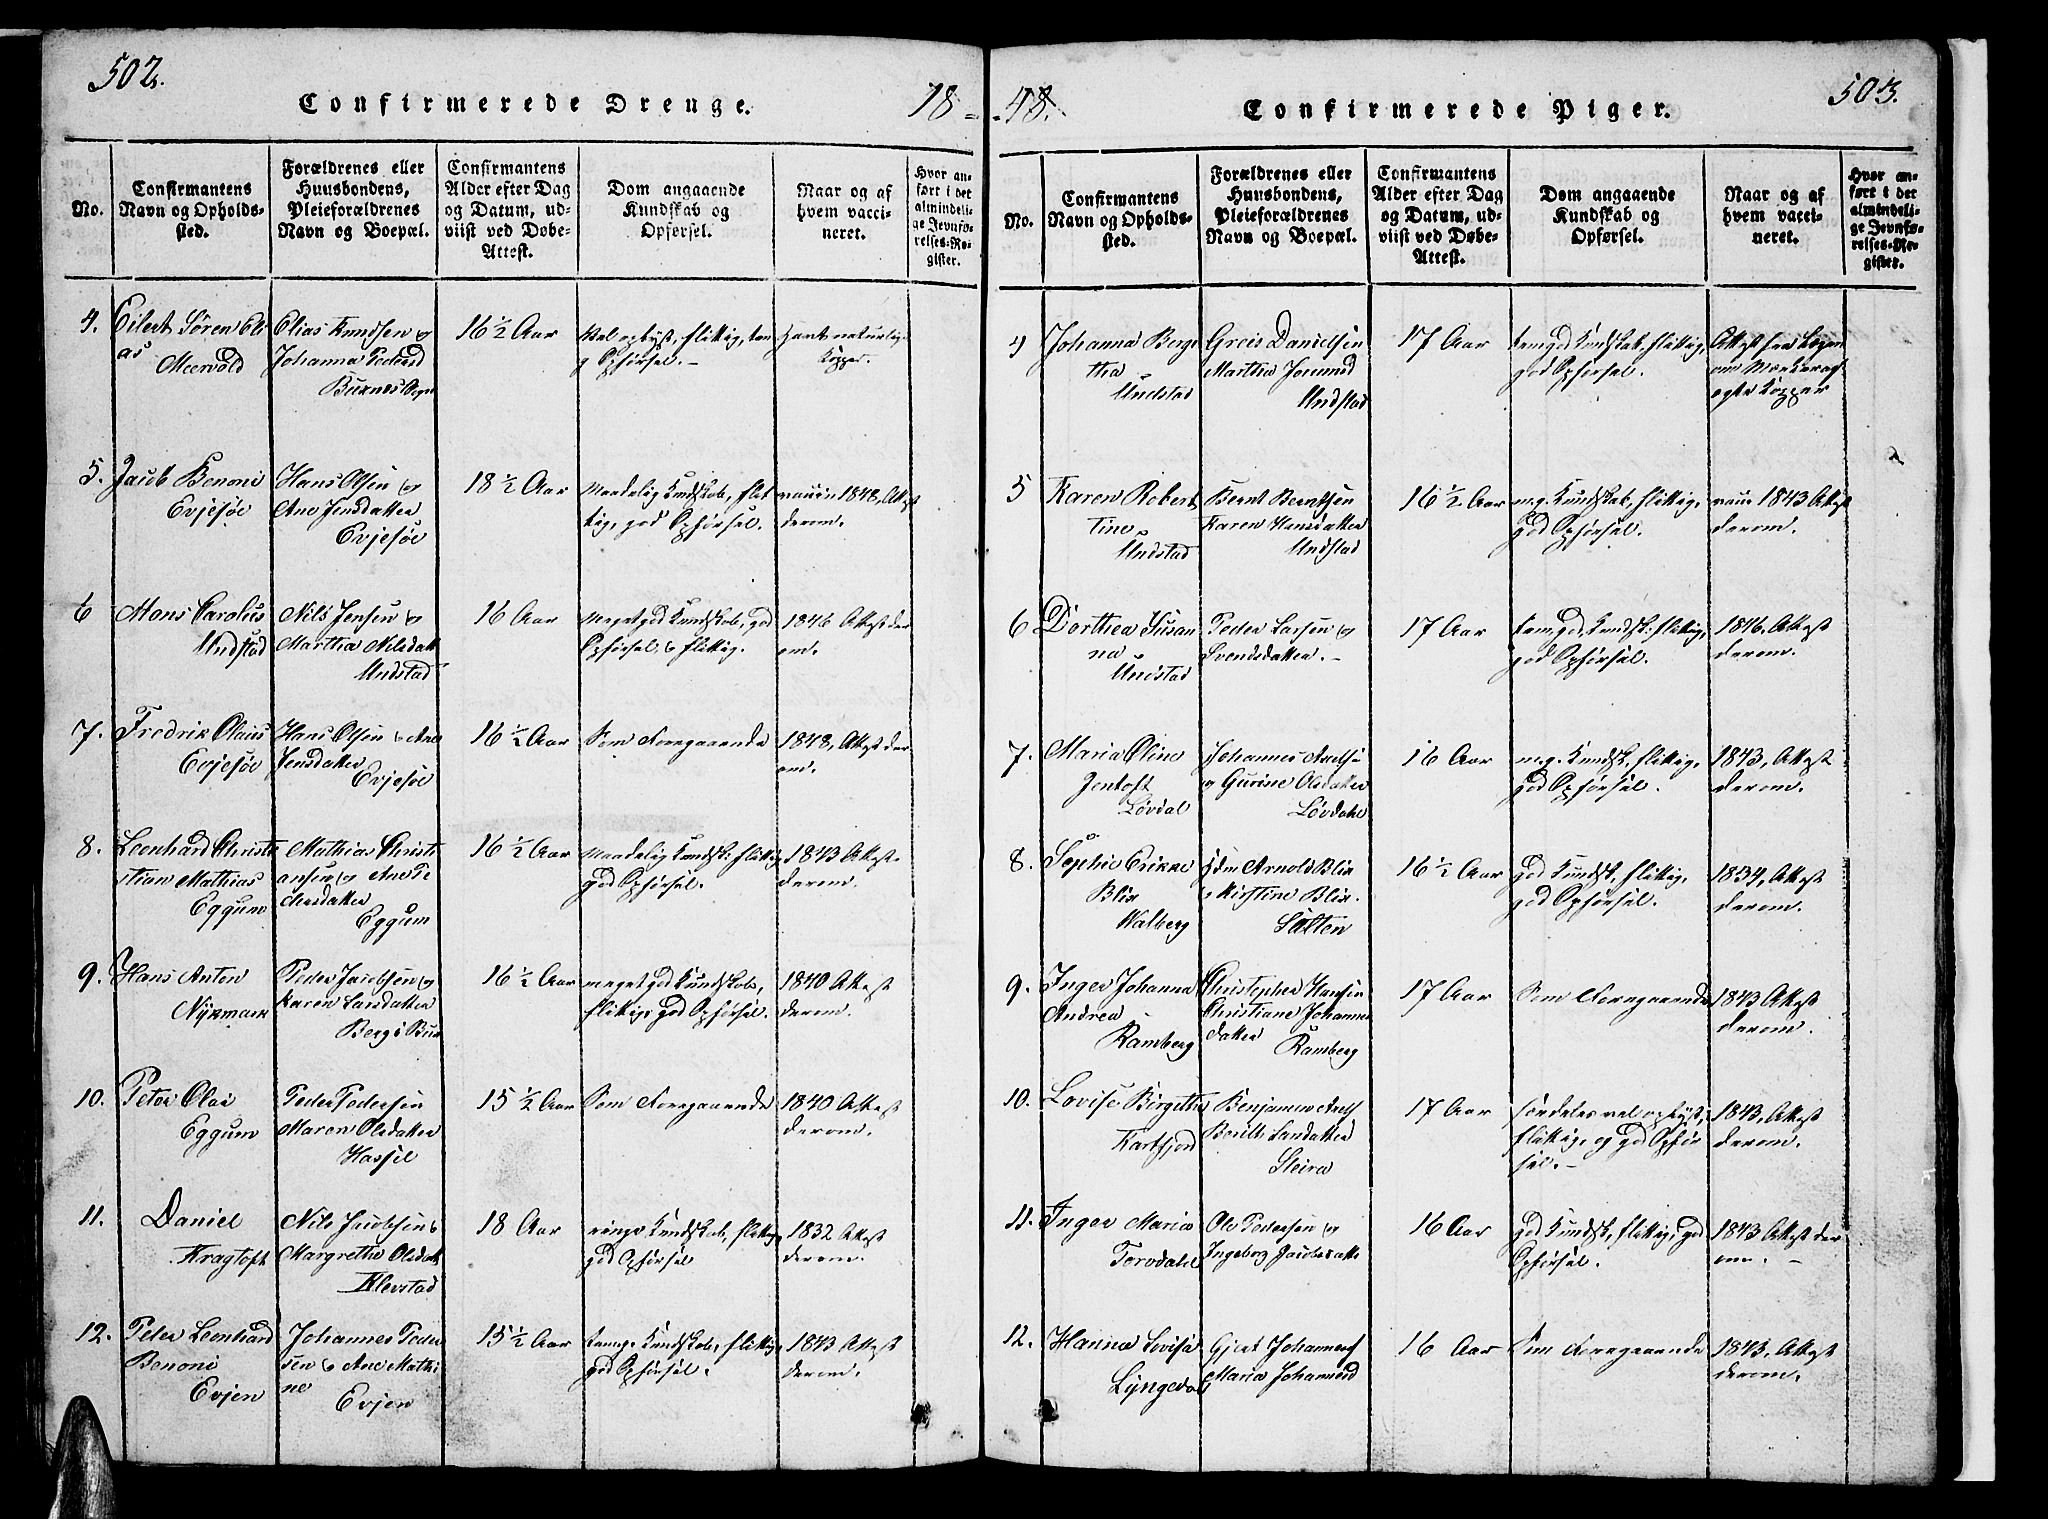 502.
Confirmerede Drenge.
18 =
No.
Confirmantens
Navn og Opholds-
sted.
Forældrenes eller
Huusbondens,
Pleieforældrenes
Navn og Boepæl.
Confirmantens
Alder efter Dag
og Datum, ud-
viist ved Døbe-
Attest.
Dom angaaende
Kundskab og
Opførsel.
Naar og af
hvem vacci-
neret.
Hvor an-
ført i det
almindeli-
ge Jevnfø-
relses-Re-
gister.
4. Eilert Søren Eli
as
Meervold
Elias Knudsen og
Johanna Pedersd
Buxnes Sogn
16 ½ Aar
Vel oplyst, flittig,
g Opførsel.-
Havt naturlige
Kopper.
5. Jacob Benoni
Evjesøe
Hans Olsen og
Ane Jensdatter
Evjesøe
18 ½ Aar
Maadelig Kundskab, flit
tig, god Opførsel.
vaccin 1848, Attest
derom.
6 Mons Carolus
Undstad
Nils Jensen og
Martha Nilsdatt
Undstad
16 Aar
Meget god Kundskab, god
Opførsel, og flittig.
1846 Attest der
om.
7. Fredrik Olaus
Evjesøe
Hans Olsen og Ane
Jensdatter
Evjesøe
16 ½ Aar
Som Foregaaende
1848, Attest der
om.
8. Leonhard Christi
stian Mathias
Eggum
Mathias Christi
ansen og Ane Pe
dersdatter
Eggum
16 ½ Aar
Maadelig Kundsk: flittig,
god Opførsel.
1843 Attest
derom.
9. Hans Anton
Nykmark
Peder Jacobsen og
Karen Larsdatter
Berg i Bux
16 ½ Aar
meget god Kundskab,
flittig, god Opførsel.
1840 Attest
derom.
10. Peter Olai
Eggum
Peder Pedersen
Maren Olsdatter
Hassel
15 ½ Aar
Som Foregaaende
1840 Attest
derom.
11. Daniel
Kragtoft
Nils Jacobsen og
Margrethe Olsdatt
Klevstad
18 Aar
ringe Kundskab, flittig,
god Opførsel
1832 Attest
derom.
12. Peter Leonhard
Benoni
Evjen
Johannes Peder
sen og Ane Mathi
ne
Evjen
15 ½ Aar
temg. Kundskab, flittig,
god Opførsel.
1843 Attest
derom.
48.
Confirmerede Piger.
503.
No.
Confirmantens
Navn og Opholds-
sted.
Forældrenes eller
Huusbondens,
Pleieforældrenes
Navn og Boepæl.
Confirmantens
Alder efter Dag
og Datum, ud-
viist ved Døbe-
Attest.
Dom angaaende
Kundskab og
Opførsel.
Naar og af
hvem vacci-
neret.
Hvor an-
ført i det
almindeli-
ge Jevnfø-
relses-Re-
gister.
4 Johanna Berge
tha
Undstad
Greis Danielsen
Martha Jonsd
Undstad
17 Aar
temgd Kundskab, flittig,
god Opførsel.
Attest fra Lægen
om Mærker af
egte Kopper
5 Karen Robert
tine
Undstad
Bernt Berntsen
Karen Hansdatter
Undstad
16 ½ Aar
m.g. Kundskab, flittig,
god Opførsel.
vacc 1843 Attest
derom.
6 Dorthea Susan
na
Undstad
Peder Larsen og
Svendsdatter.-
17 Aar
tem. gd. Kundsk: flittig,
god Opførsel.
1846. Attest
derom.
7. Maria Oline
Jentoft
Løvdal
Johannes Axelse
og Gurine Olsdatter
Løvdahl
16 Aar
m.g. Kundsk, flittig,
god Opførsel.
1843, Attest
derom.
8. Sophie Erikke
Blix
Walberg
Arnold Blix
Kirstine Blix.
Salten
16 ½ Aar
god Kundsk, flittig,
god Opførsel.
1834, Attest
derom.
9. Inger Johanna
Andrea
Ramberg
Christopher Hansen
Christiane Johannes
datter
Ramberg
17 Aar
Som Foregaaende
1843 Attest
derom.
10. Lovise Birgithe
Kartfjord
Benjamin Axels
Berith Larsdatter
Steira
17 Aar
særdeles vel oplyst,
flittig, og god Opfør
sel.-
1843, Attest
derom.
11. Inger Maria
Torvdahl
Ole Pedersen og
Ingeborg Jacobsdatte
16 Aar
god Kundsk, flittig, god
Opførsel.
1843 Attest der
om. -
12. Hanna Lovise
Lyngedal
Gjert Johannes
Maria Johannesd
16 Aar
Som Foregaaende
1843, Attest
derom.